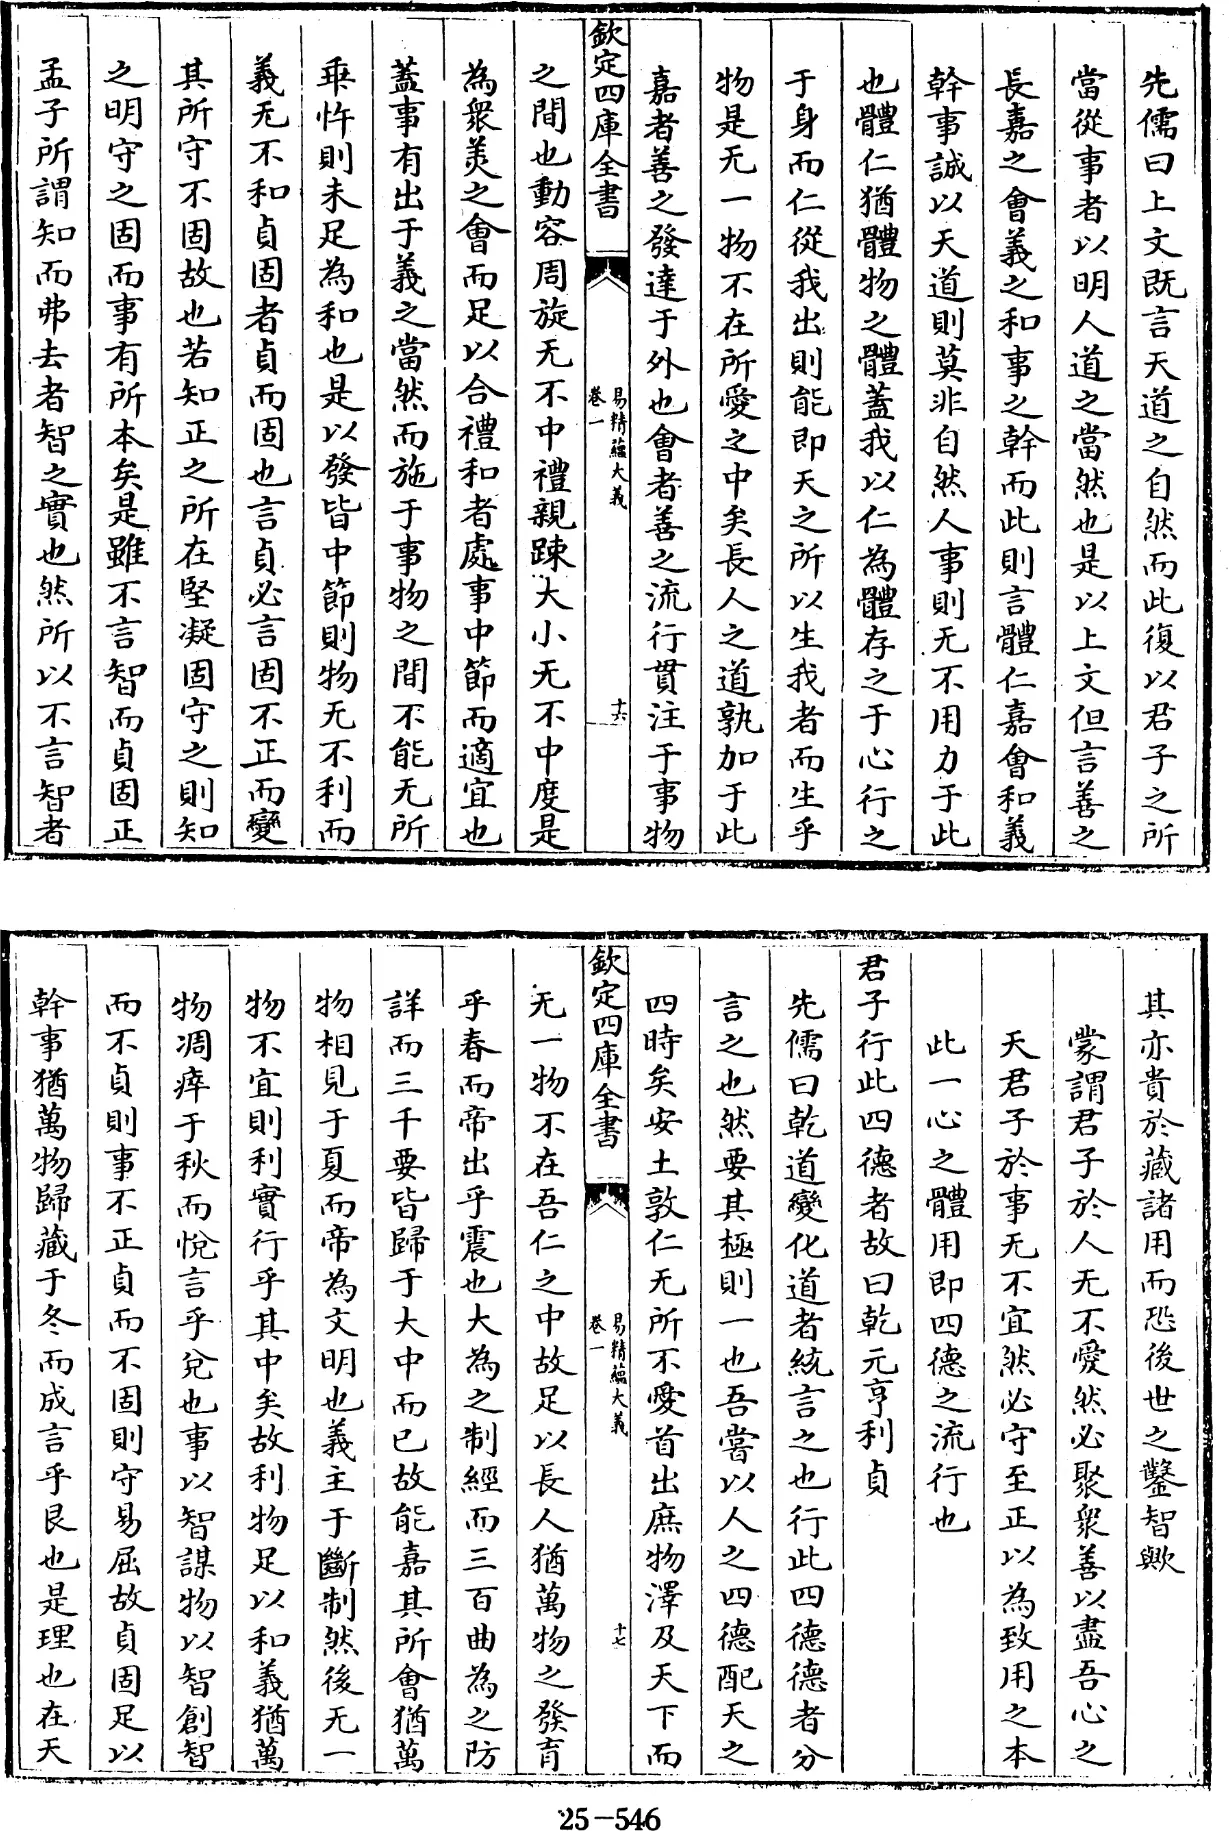 先儒曰上文既言天道之自然而此復以君子之所
當從事者以明人道之當然也是以上文但言善之
長嘉之會義之和事之幹而此則言體仁嘉會和義
幹事誠以天道則莫非自然人事則无不用力于此
也體仁猶體物之體蓋我以仁為體存之于心行之
于身而仁從我出則能即天之所以生我者而生乎
物是无一物不在所愛之中矣長人之道孰加于此
嘉者善之發達于外也會者善之流行貫注于事物
欽定四庫全書
易精蘊大義
卷一
十六
之間也動容周旋无不中禮親踈大小无不中度是
為衆羙之會而足以合禮和者處事中節而適宜也
蓋事有出于義之當然而施于事物之間不能无所
乖忤則未足為和也是以發皆中節則物无不利而
義无不和貞固者貞而固也言貞必言固不正而變
其所守不固故也若知正之所在堅凝固守之則知
之明守之固而事有所本矣是雖不言智而貞固正
孟子所謂知而弗去者智之實也然所以不言智者
其亦貴於藏諸用而恐後世之鑿智歟
蒙謂君子於人无不愛然必聚衆善以盡吾心之
天君子於事无不宜然必守至正以為致用之本
此一心之體用即四德之流行也
君子行此四德者故曰乾元亨利貞
先儒曰乾道變化道者統言之也行此四德德者分
言之也然要其極則一也吾嘗以人之四德配天之
四時矣安土敦仁无所不愛首出庶物澤及天下而
欽定四庫全書
易精蘊大義
卷一
十七
无一物不在吾仁之中故足以長人猶萬物之發育
乎春而帝出乎震也大為之制經而三百曲為之防
詳而三千要皆歸于大中而已故能嘉其所會猶萬
物相見于夏而帝為文明也義主于斷制然後无一
物不宜則利實行乎其中矣故利物足以和義猶萬
物凋瘁于秋而悅言乎兌也事以智謀物以智創智
而不貞則事不正貞而不固則守易屈故貞固足以
幹事猶萬物歸藏于冬而成言乎艮也是理也在天
25-546